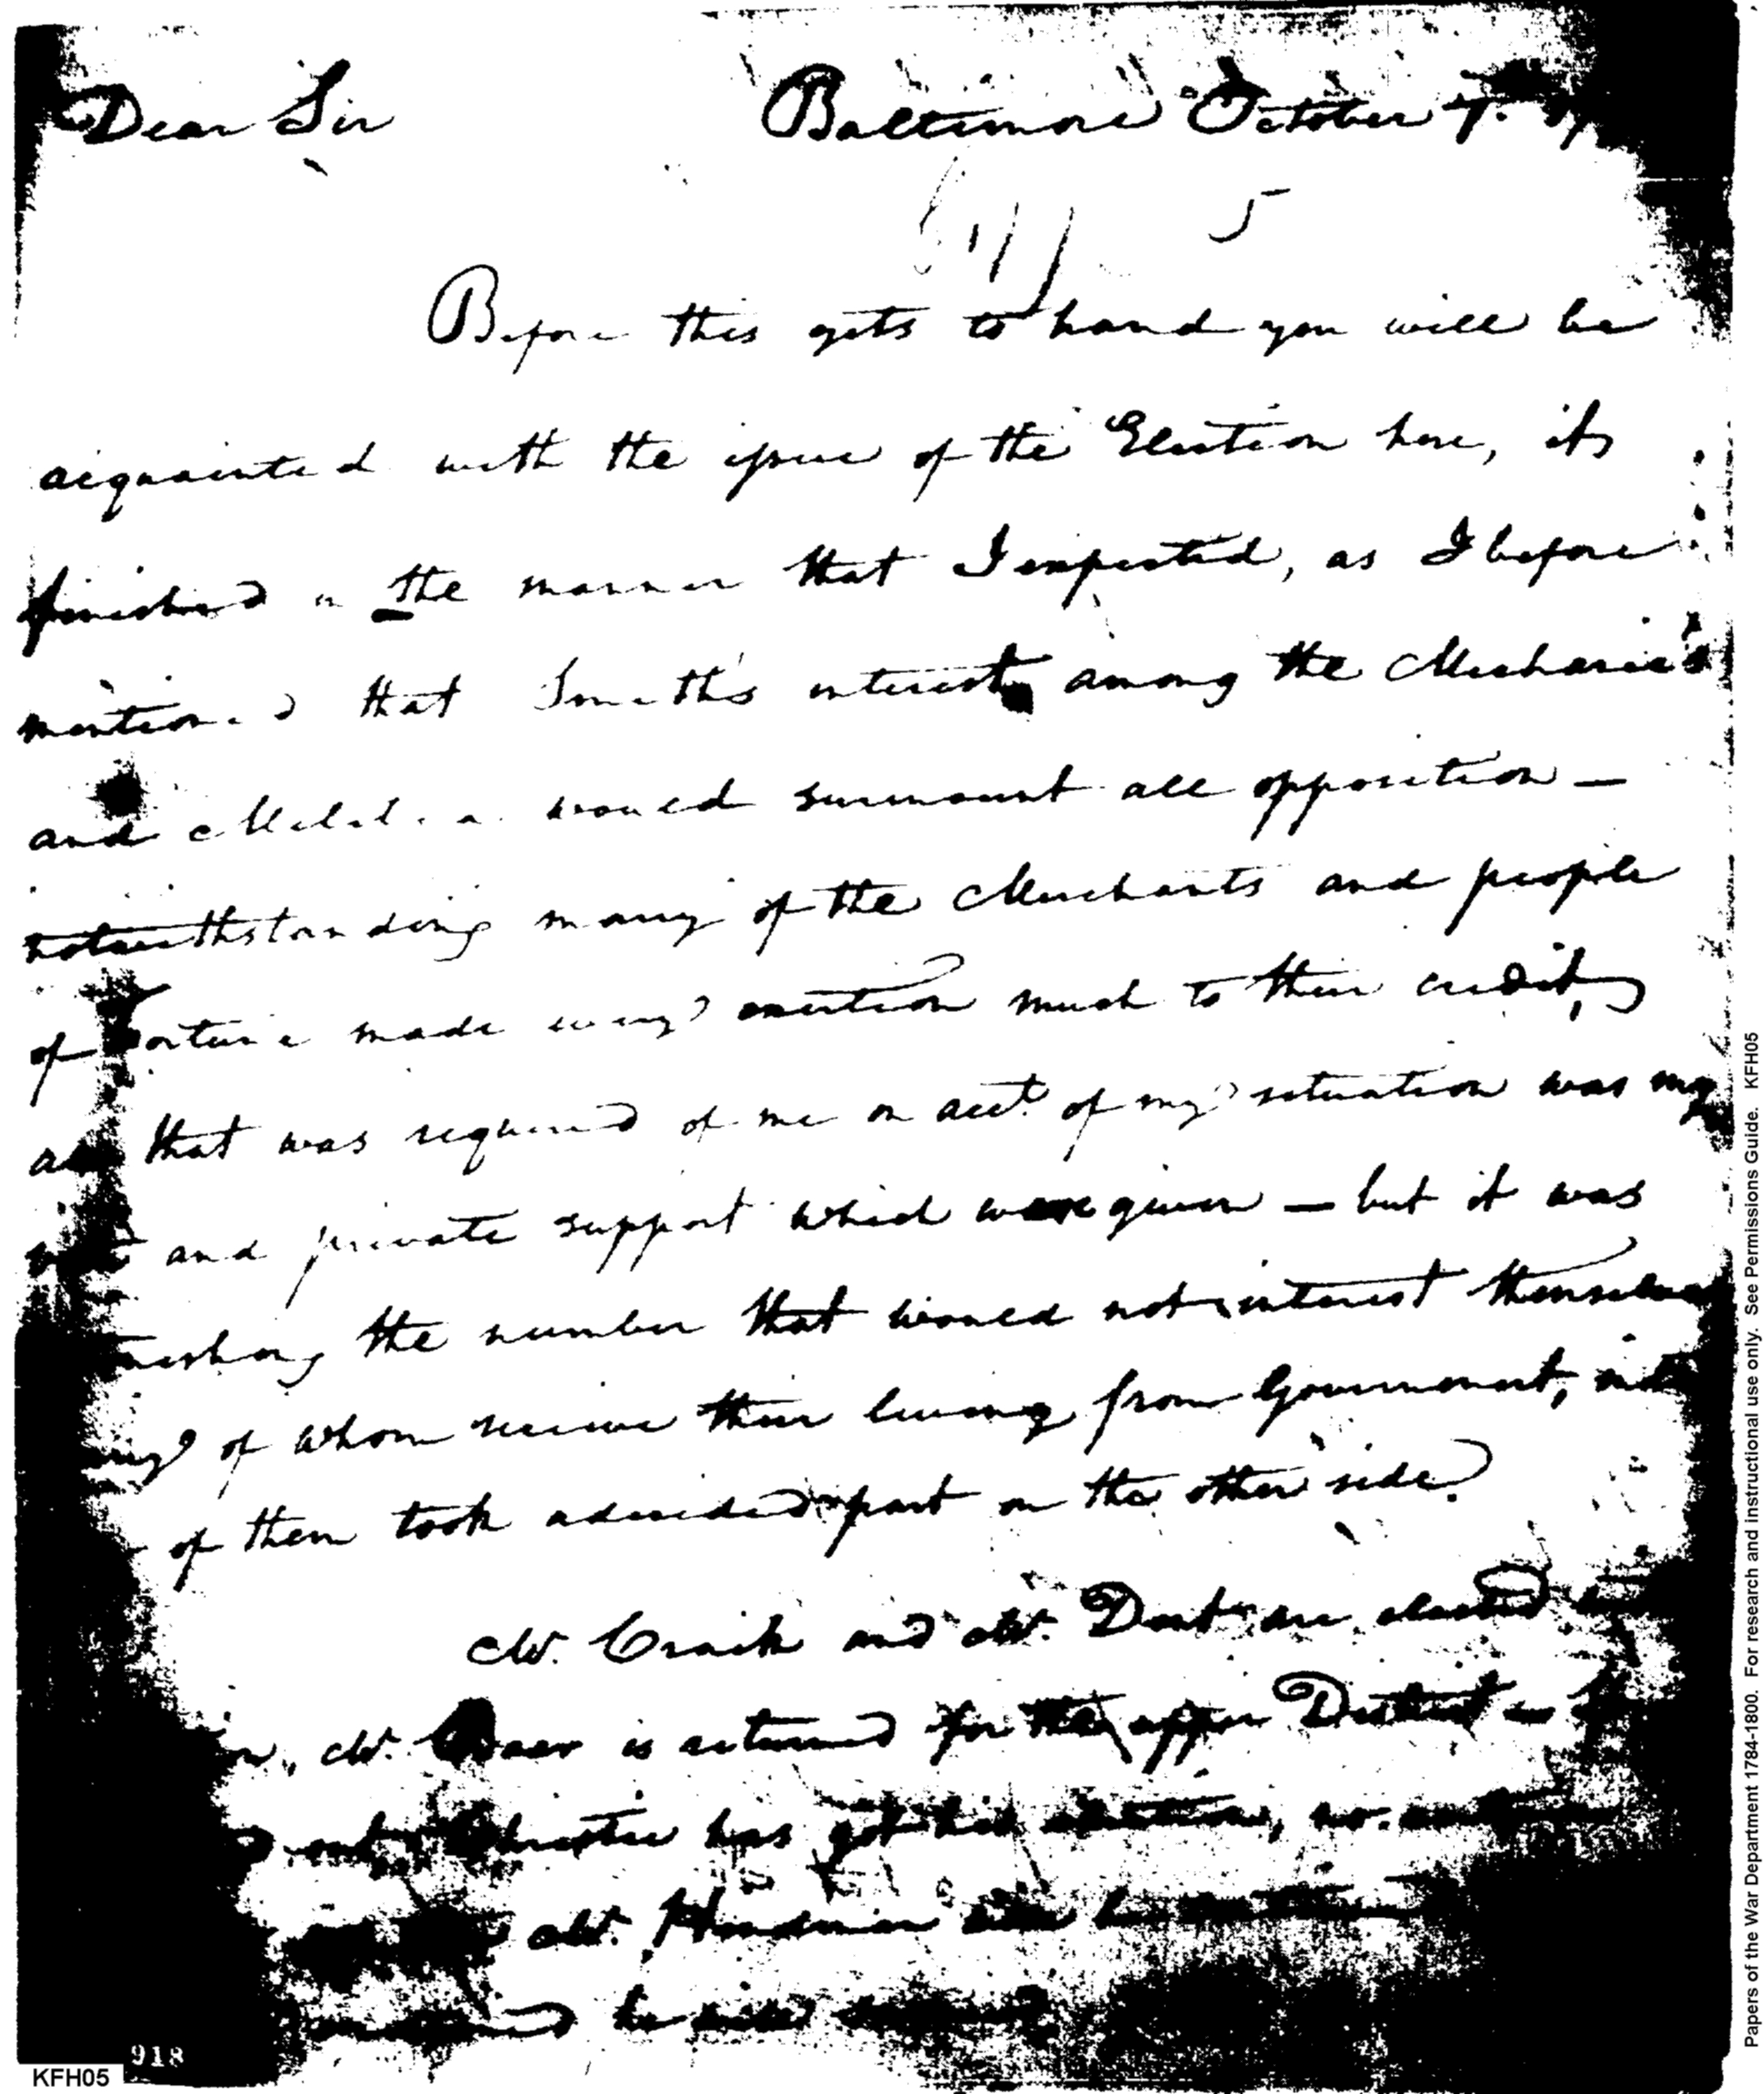 Dear Sir Baltimore October 7.
5
Before this gets to hand you will be
acquainted with the issue of the Election here, its
finished in the manner that I expected, as I before
mentioned that Smith's interest among the Mechanic's
and Militia would surmount all opposition —
notwithstanding many of the Merchants and people
of Fortune made every exertion much to their credit,
all that was required of me on acct. of my situation was my
and private support which were given — but it was
the number that would not interest themselves
of whom receive their living from Government,
of them took a decided part on the other side.
Mr. Craik and Mr. Dent are elected
Mr. Baer is returned for the upper District
Christie has got his election, no
Mr. Hindman
he will
918
KFH05
Papers of the War Department 1784-1800. For research and instructional use only. See Permissions Guide. KFH05